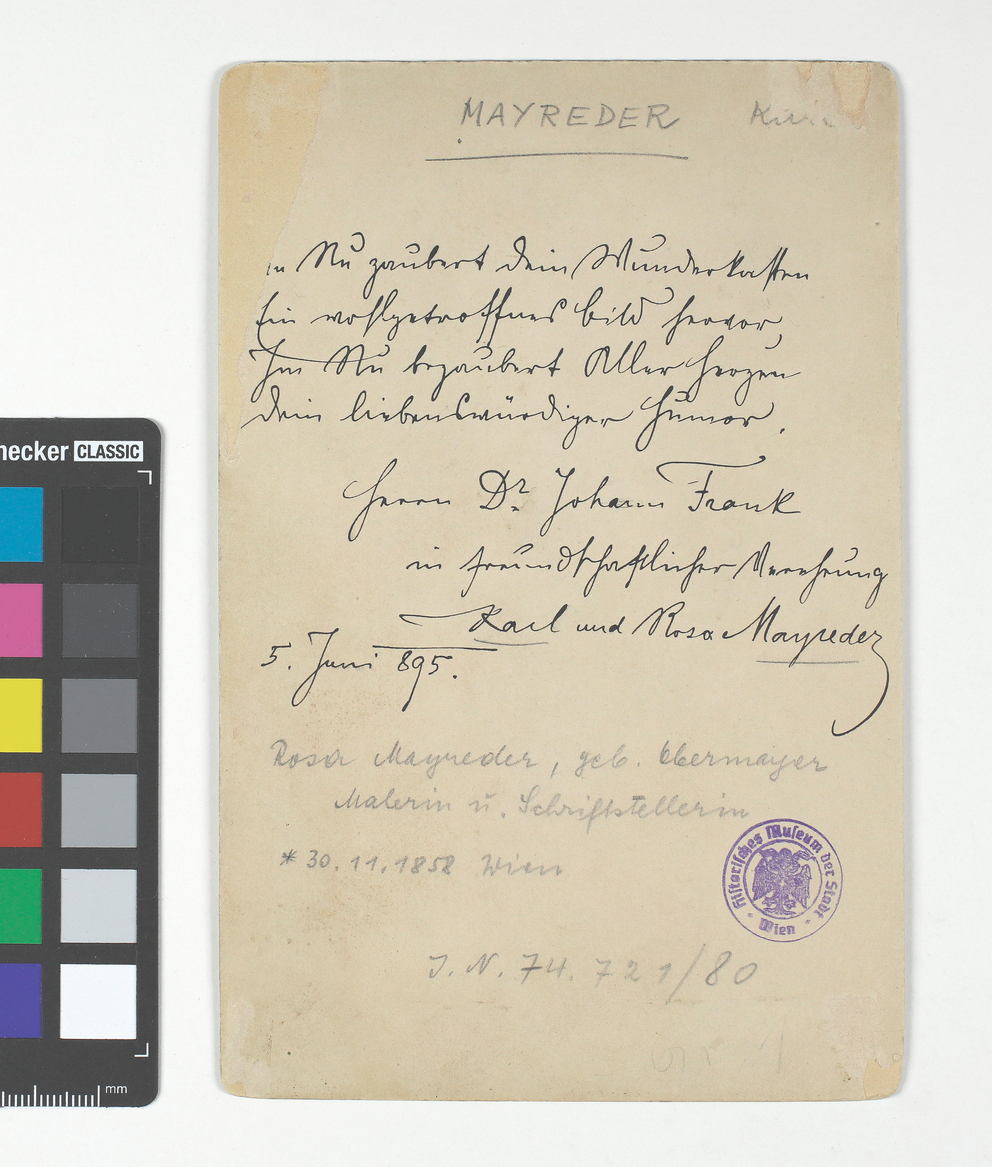 MAYREDER
Nu zaubert dein Wunderkasten
Ein wohlgetroffnes Bild hervor,
Im Nu bezaubert Aller Herzen
Dein liebenswürdiger Humor.
Herrn Dr. Johann Frank
in freundschaftlicher Verehrung
Karl und Rosa Mayreder
5. Juni 895.
Rosa Mayreder, geb. Obermayer
Malerin u. Schriftstellerin
* 30.11.1858 Wien
Historisches Museum der Stadt
Wien
J.N. 74.721/80
necker CLASSIC
mm